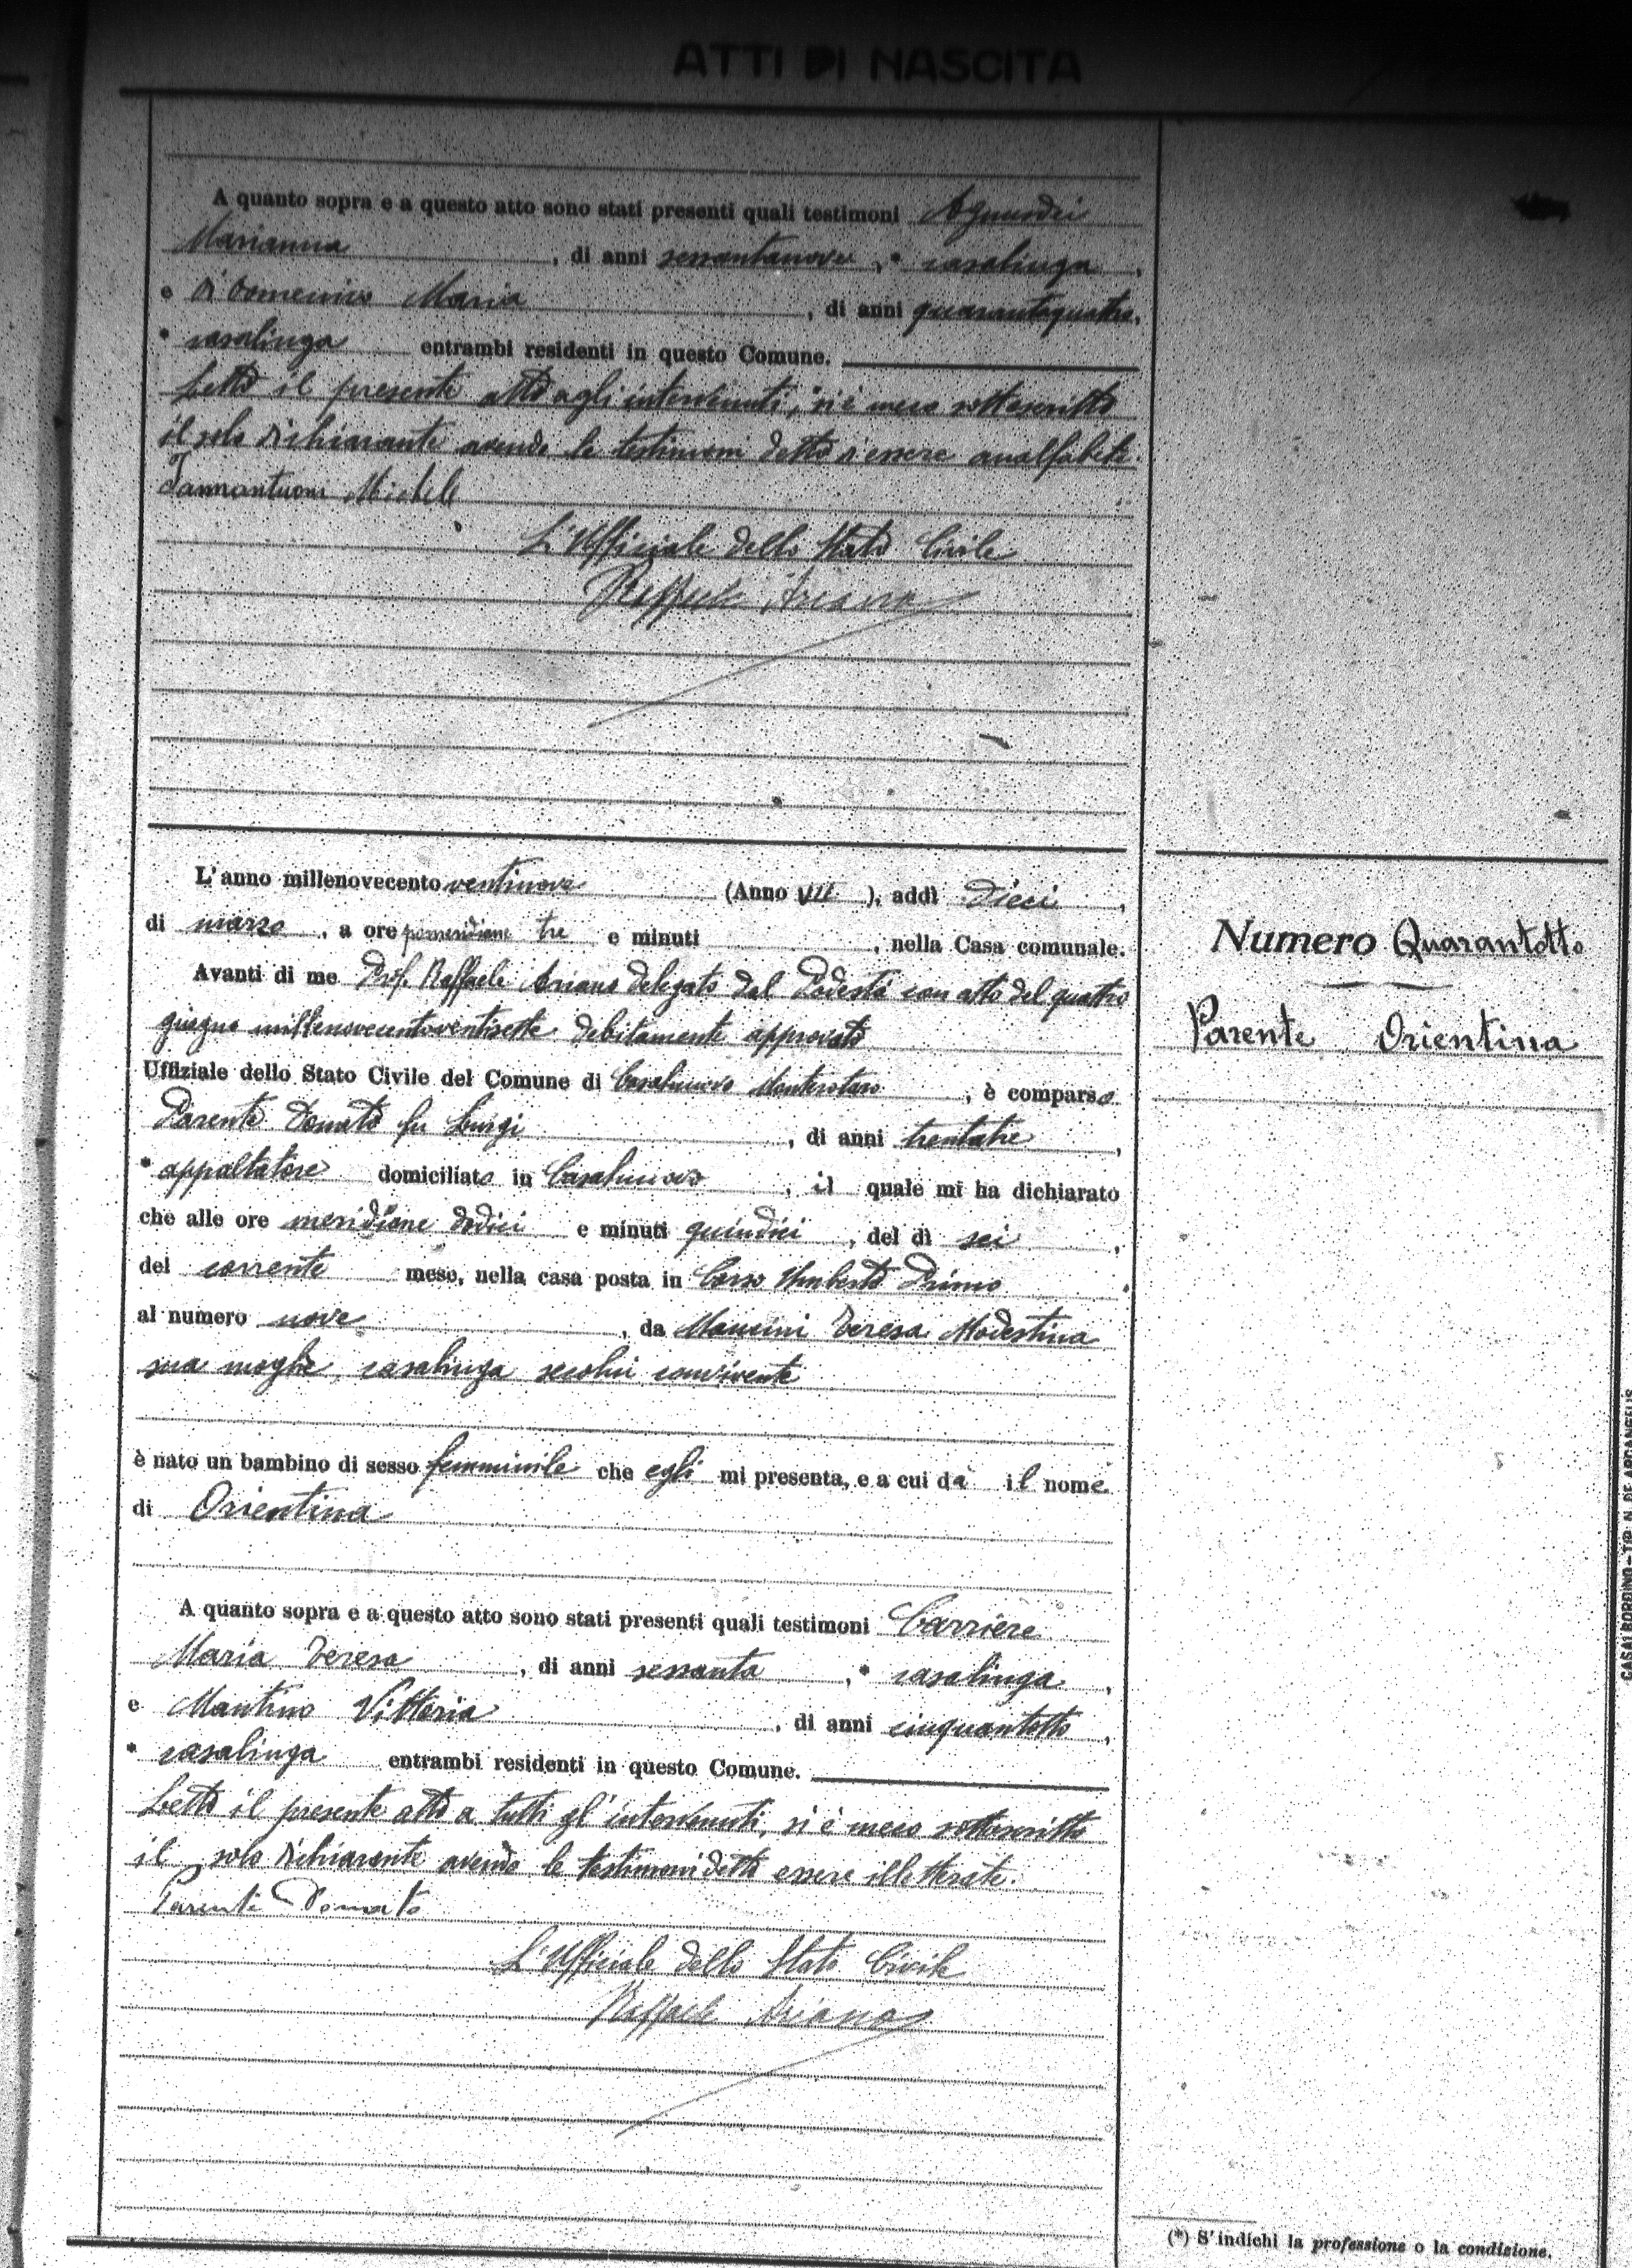 ATTI DI NASCITA
A quanto sopra e a questo atto sono stati presenti quali testimoni
Marianna, di anni sessantanove, * casalinga,
e Di Domenico Maria, di anni quarantaquattro,
* casalinga entrambi residenti in questo Comune.
Letto il presente atto agli intervenuti, si è meco sottoscritto
il solo dichiarante avendo le testimoni detto d'essere analfabete.
Iammantuoni Michele
L'Ufficiale dello Stato Civile
Raffaele Ariano
L'anno millenovecento ventinove (Anno VII), addì dieci,
di marzo, a ore pomeridiane tre e minuti, nella Casa comunale.
Avanti di me Prof. Raffaele Ariano delegato dal Podestà con atto del quattro
giugno millenovecentoventisette debitamente approvato
Uffiziale dello Stato Civile del Comune di Casalnuovo Monterotaro, è comparso
Parente Donato fu Luigi, di anni trentatre,
* appaltatore domiciliato in Casalnuovo, il quale mi ha dichiarato
che alle ore meridiane dodici e minuti quindici, del dì sei,
del corrente mese, nella casa posta in Corso Umberto Primo
al numero nove, da Mancini Teresa Modestina
sua moglie, casalinga secolui convivente
è nato un bambino di sesso femminile che egli mi presenta, e a cui dà il nome
di Orientina
A quanto sopra e a questo atto sono stati presenti quali testimoni Carriere
Maria Teresa, di anni sessanta, * casalinga,
e Mantino Vittoria, di anni cinquantotto,
* casalinga entrambi residenti in questo Comune.
Letto il presente atto a tutti gl'intervenuti, si è meco sottoscritto
il solo dichiarante avendo le testimoni detto essere illetterate.
Parente Donato
L'Ufficiale dello Stato Civile
Raffaele Ariano
Numero Quarantotto
Parente Orientina
(*) S'indichi la professione o la condizione.
CASALBORDINO - TIP. N. DE ARCANGELIS